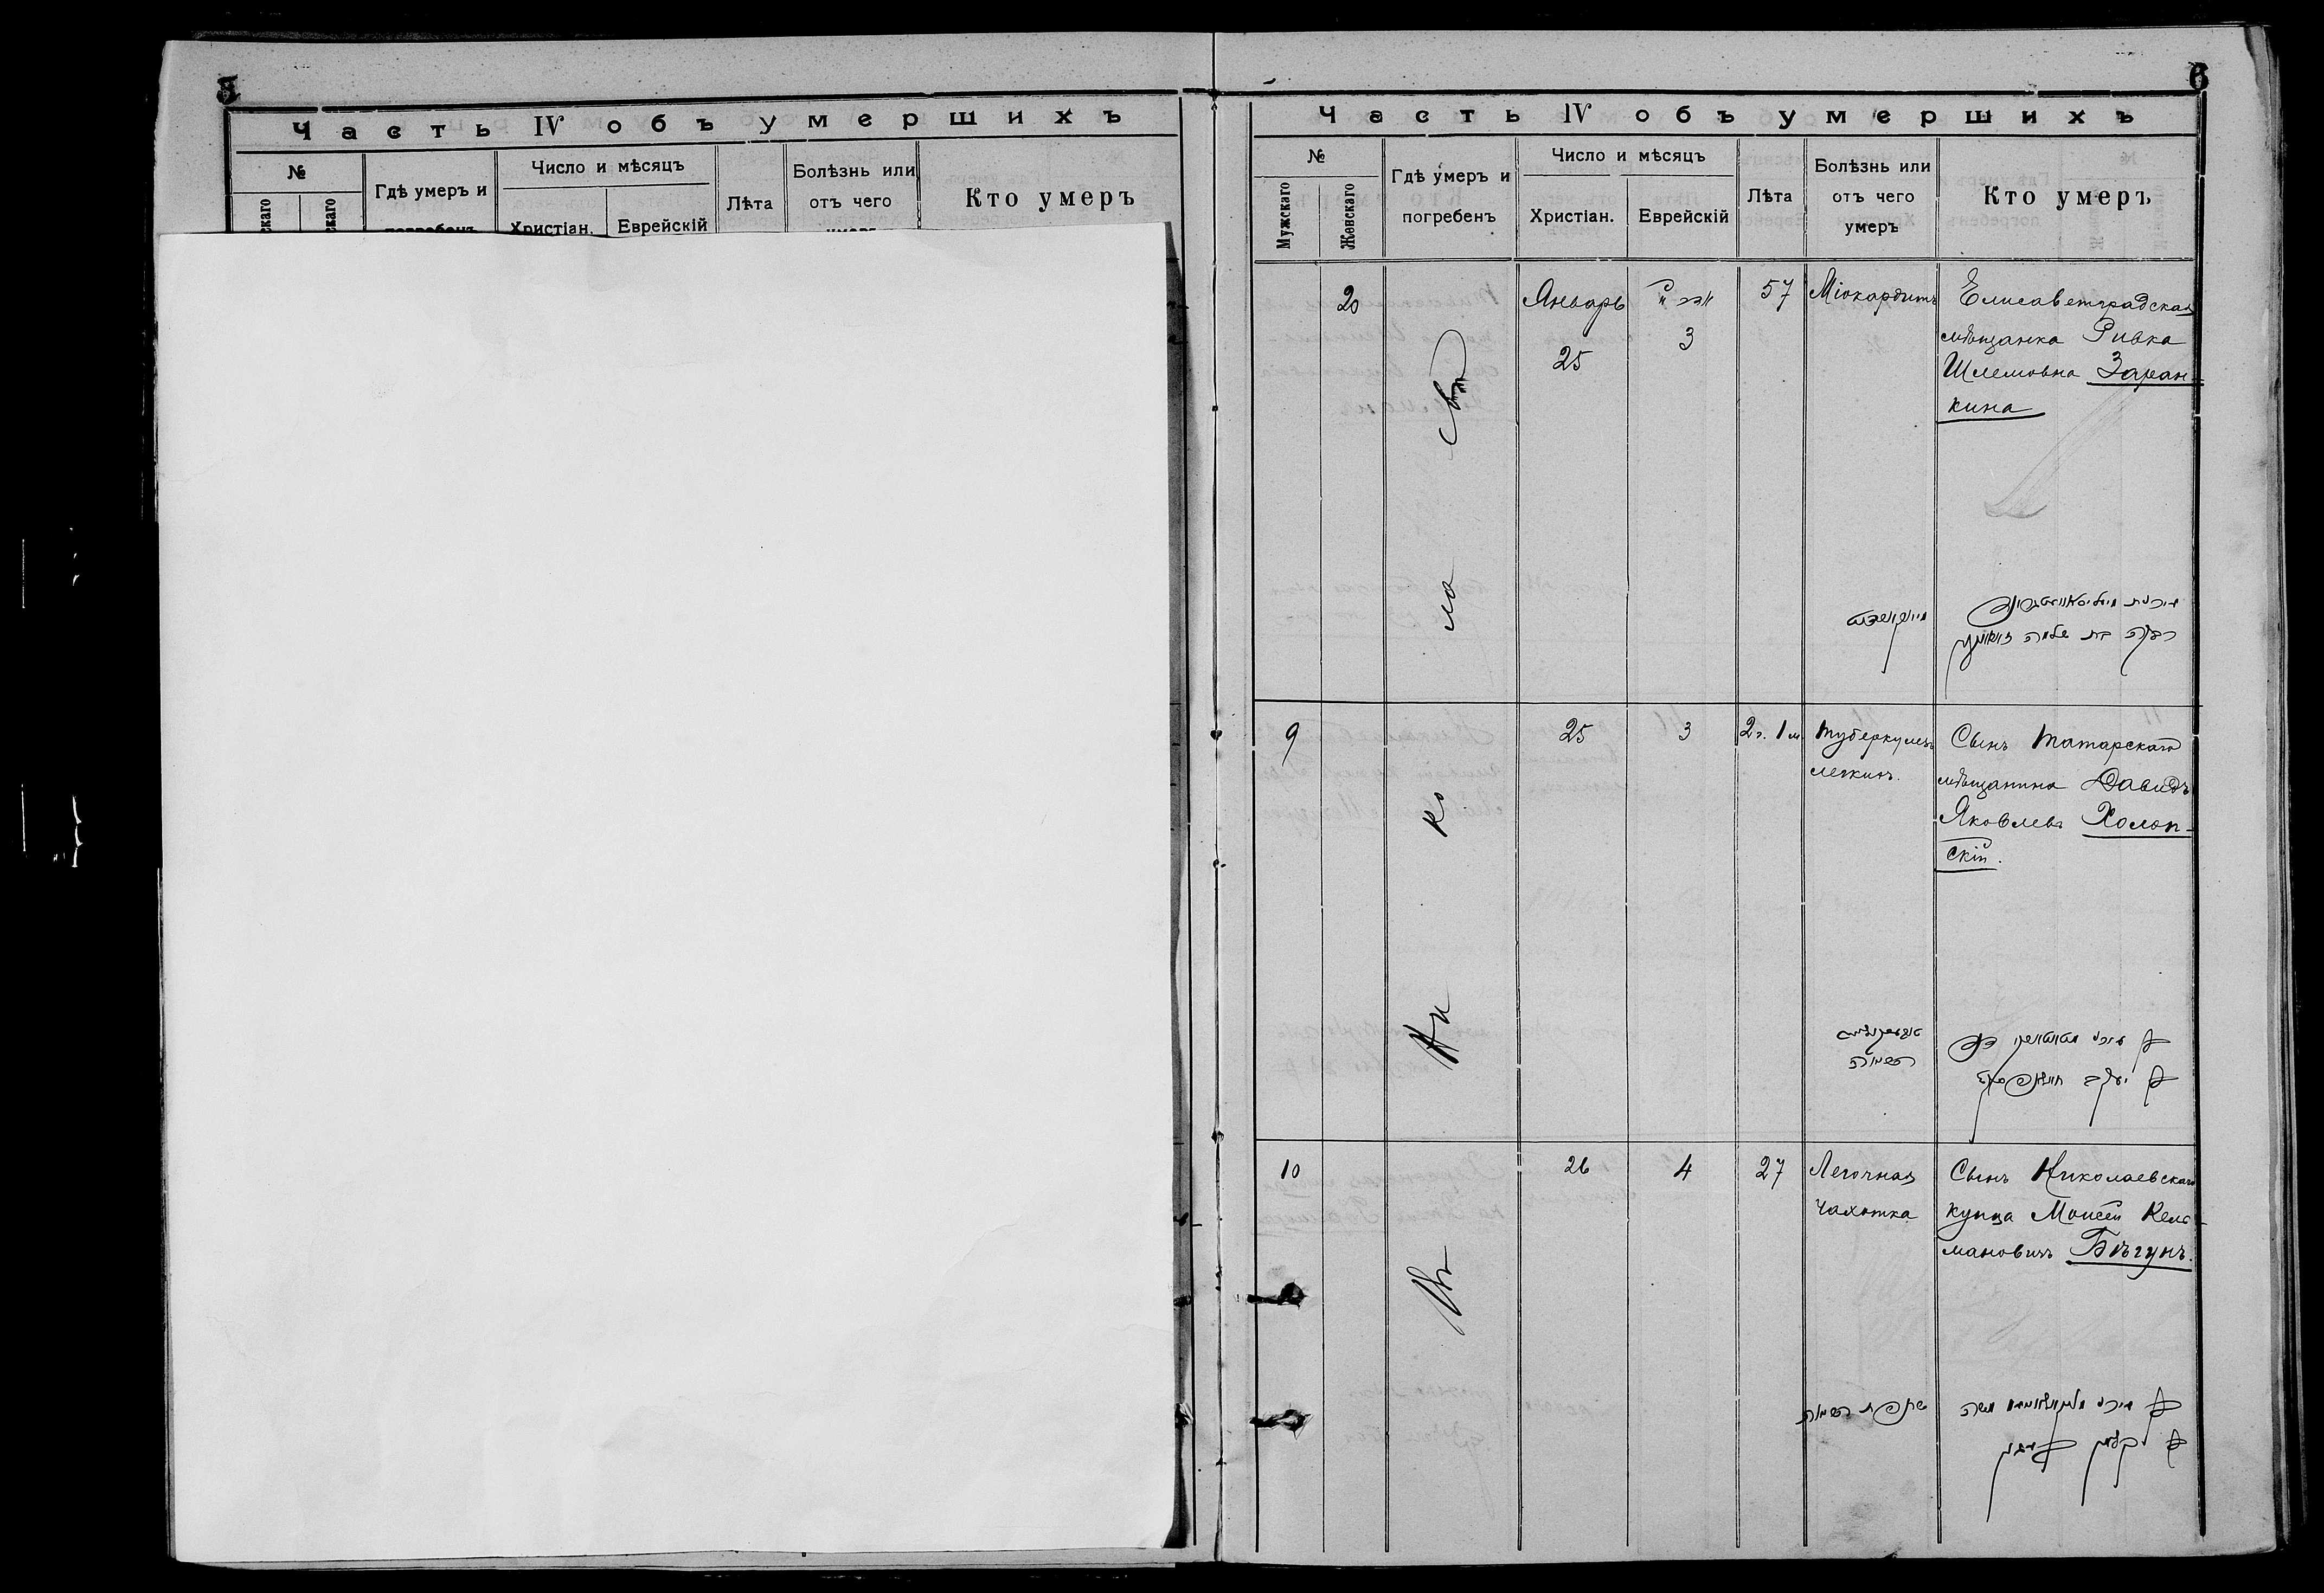 5
Часть IV объ умершихъ
№
Гдѣ умеръ и
Число и мѣсяцъ
Христіан.
Еврейскій
Лѣта
Болѣзнь или
отъ чего
Кто умеръ
6
Часть IV объ умершихъ
№
Мужскаго
Женскаго
Гдѣ умеръ и
погребенъ
Число и мѣсяцъ
Христіан.
Еврейскій
Лѣта
Болѣзнь или
отъ чего
умеръ
Кто умеръ
20
Январь
25
3
57
Міокардитъ
Елисаветградская
мѣщанка Ривка
Шлемовна Заран-
кина
רבקה בת שלמה
9
25
3
2 г. 1 м.
Туберкулезъ
легкихъ.
Сынъ Татарскаго
мѣщанина Давидъ
Яковлевъ Холоп-
скій.
10
26
4
27
Легочная
чахотка
Сынъ Николаевскаго
купца Моисей Кель-
мановичъ Бѣгунъ.
Въ Ни ко ла евѣ